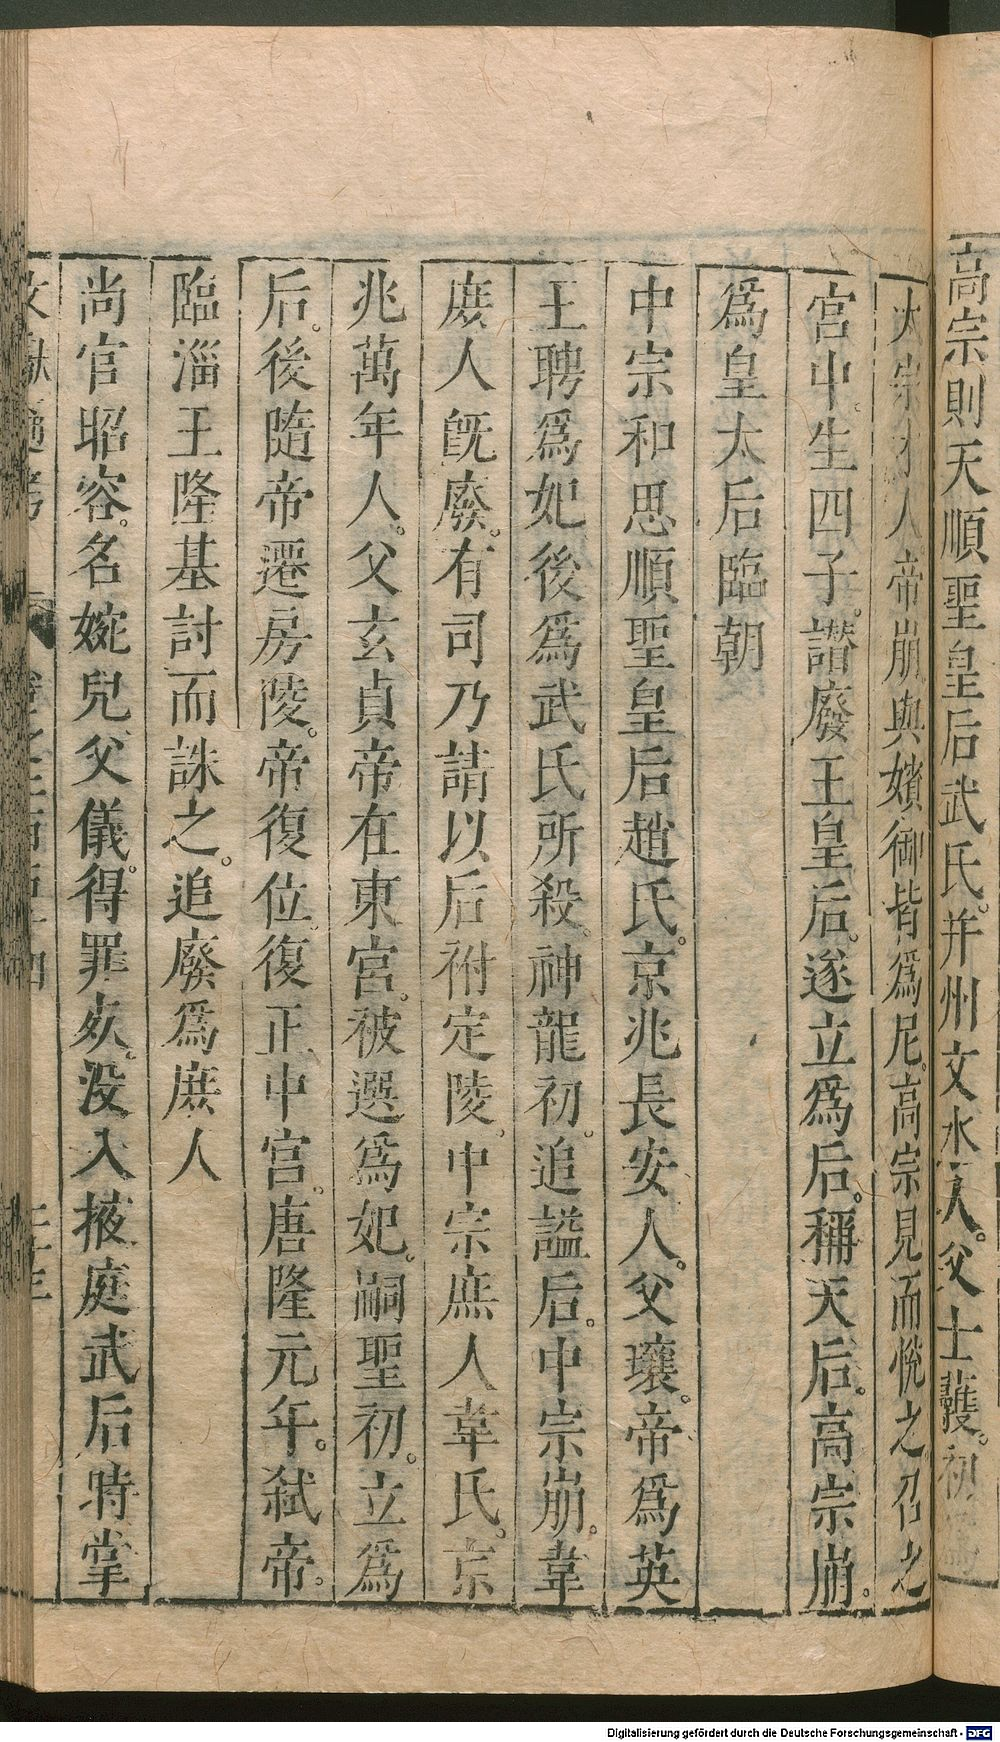 高宗則天順聖皇后武氏。并州文水人。父士彠。初
太宗才人帝崩與嬪御皆爲尼。高宗見而悅之召之
宮中生四子。譖廢王皇后。遂立爲后。稱天后。高宗崩。
爲皇太后臨朝
中宗和思順聖皇后趙氏。京兆長安人。父瓌。帝爲英
王聘爲妃後爲武氏所殺。神龍初。追謚后。中宗崩。韋
庻人旣廢。有司乃請以后祔定陵。中宗庶人韋氏。京
兆萬年人。父玄貞帝在東宮。被選爲妃。嗣聖初。立爲
后。後隨帝遷房陵。帝復位。復正中宮。唐隆元年。弑帝。
臨淄王隆基討而誅之。追廢爲庻人
尚官昭容。名婉兒父儀。得罪死。没入掖庭武后時掌
Digitalisierung gefördert durch die Deutsche Forschungsgemeinschaft - DFG